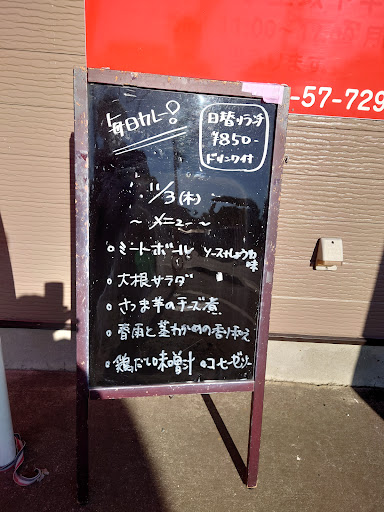 11:00~17:00
-57-729
毎日カレー?
日替ランチ
¥850-
ドリンク付
11/3(木)
~メニュー~
○ミートボール ソースorしょうゆ味
○大根サラダ
○さつま芋のチーズ煮
○春雨と茎わかめの香り和え
○鶏だし味噌汁 ○コーヒーゼリー